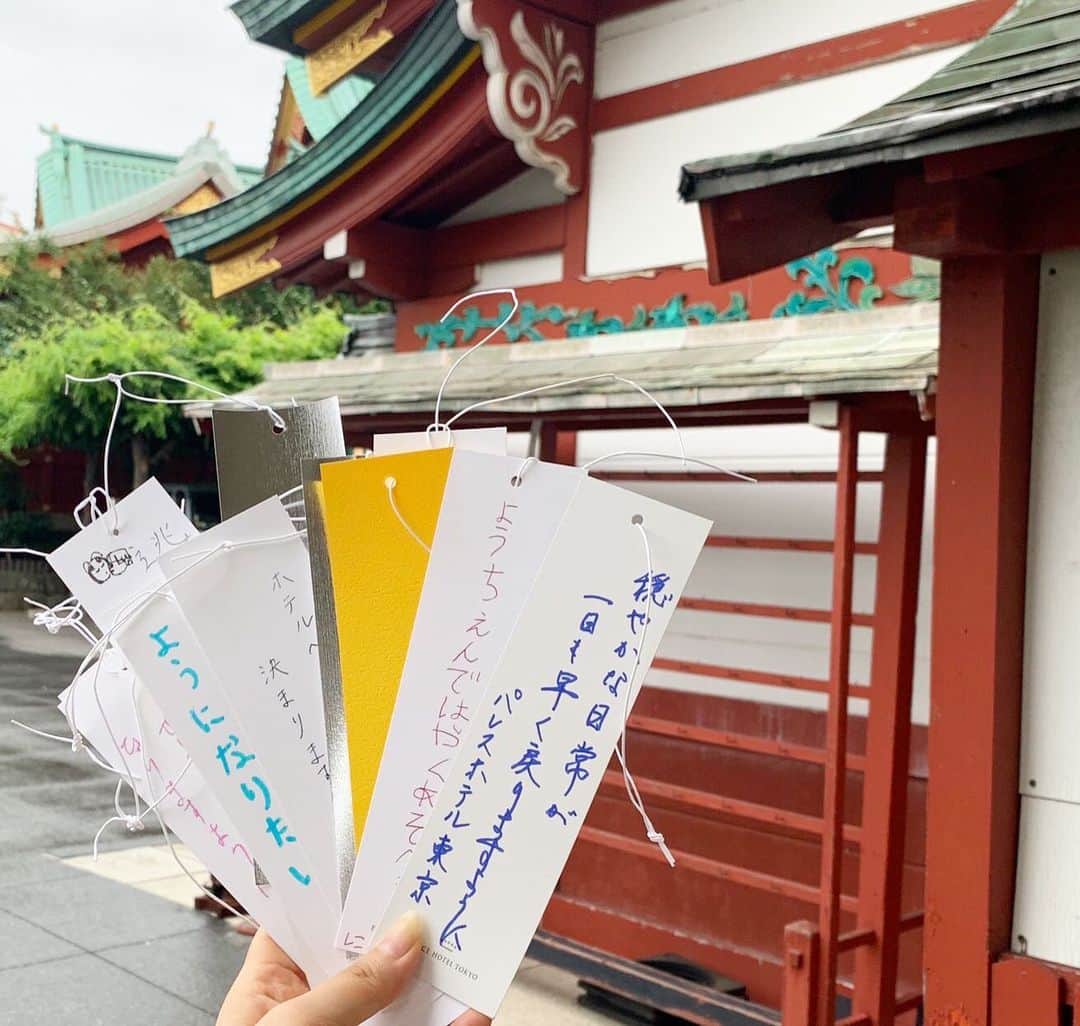 穏やかな日常が
一日も早く戻りますように
パレスホテル東京
ようちえんではやくあそ
ホテルへ
決まりま
ようになりたい
HOTEL TOKYO